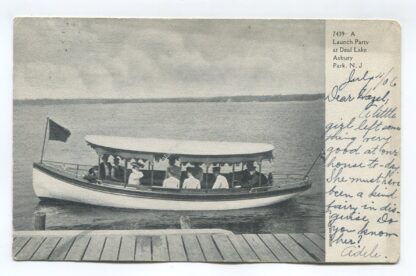 7439 - A
Launch Party
at Deal Lake
Asbury
Park, N. J
July 11/06
Dear Hazel,
A little
girl left some
thing very
good at our
house to-day.
She must have
been a kind
fairy in dis-
guise. Do
you know
her?
Adele.